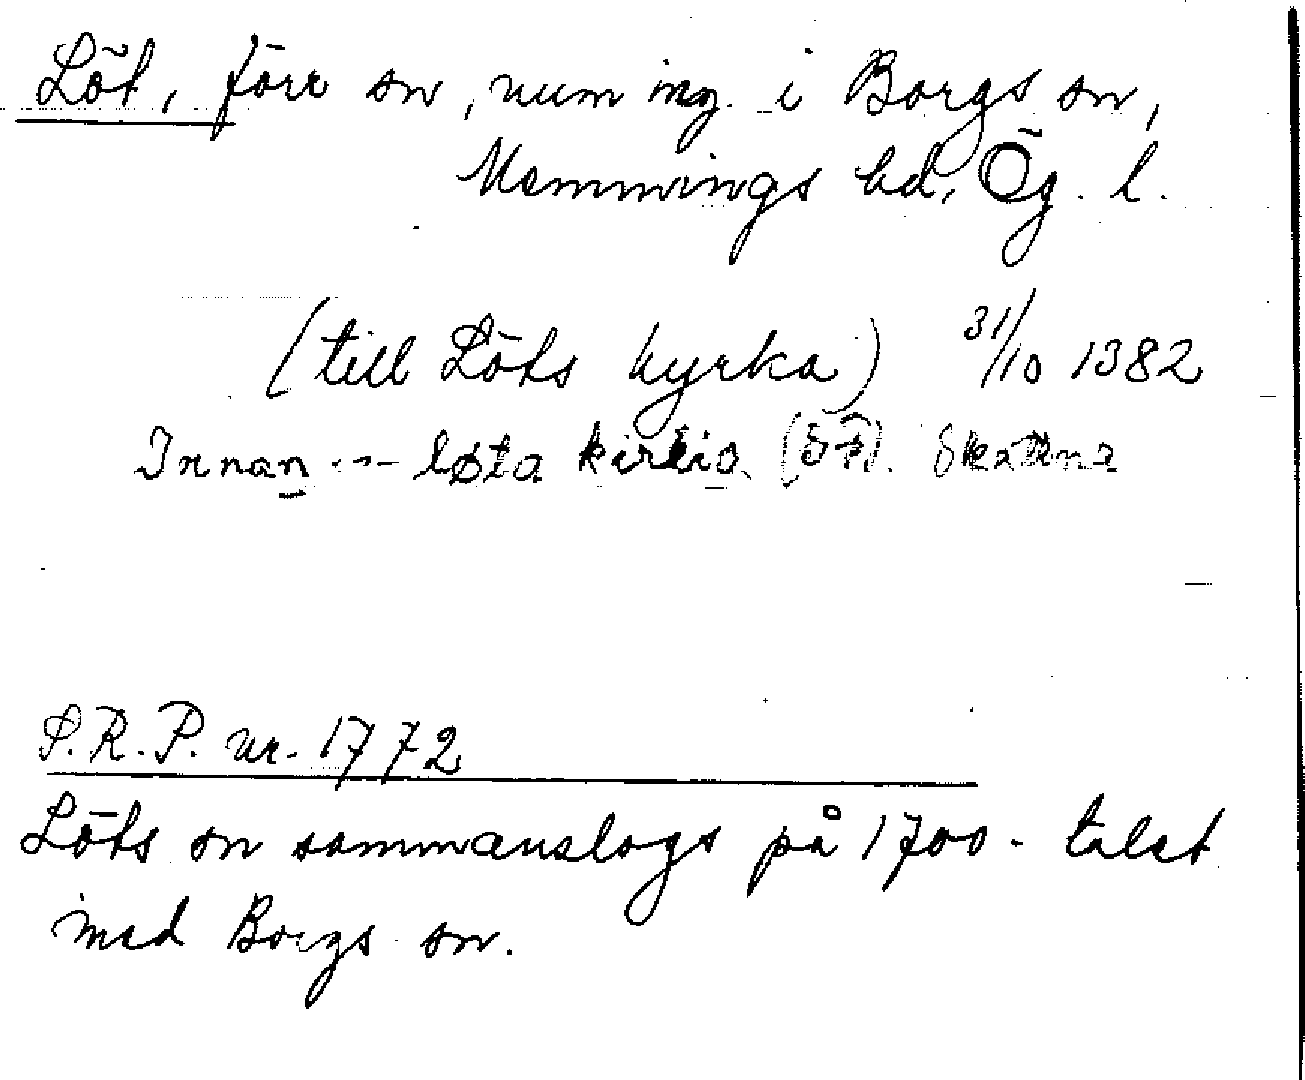 Löt, förr sn, num ing. i Borgs sn,
Memmings hd, Ög. l.
(till Löts kyrka) 31/10 1382
Innan --- løta kirkio
S.R.P. nr. 1772
Löts sn sammanslogs på 1700-talet
med Borgs sn.